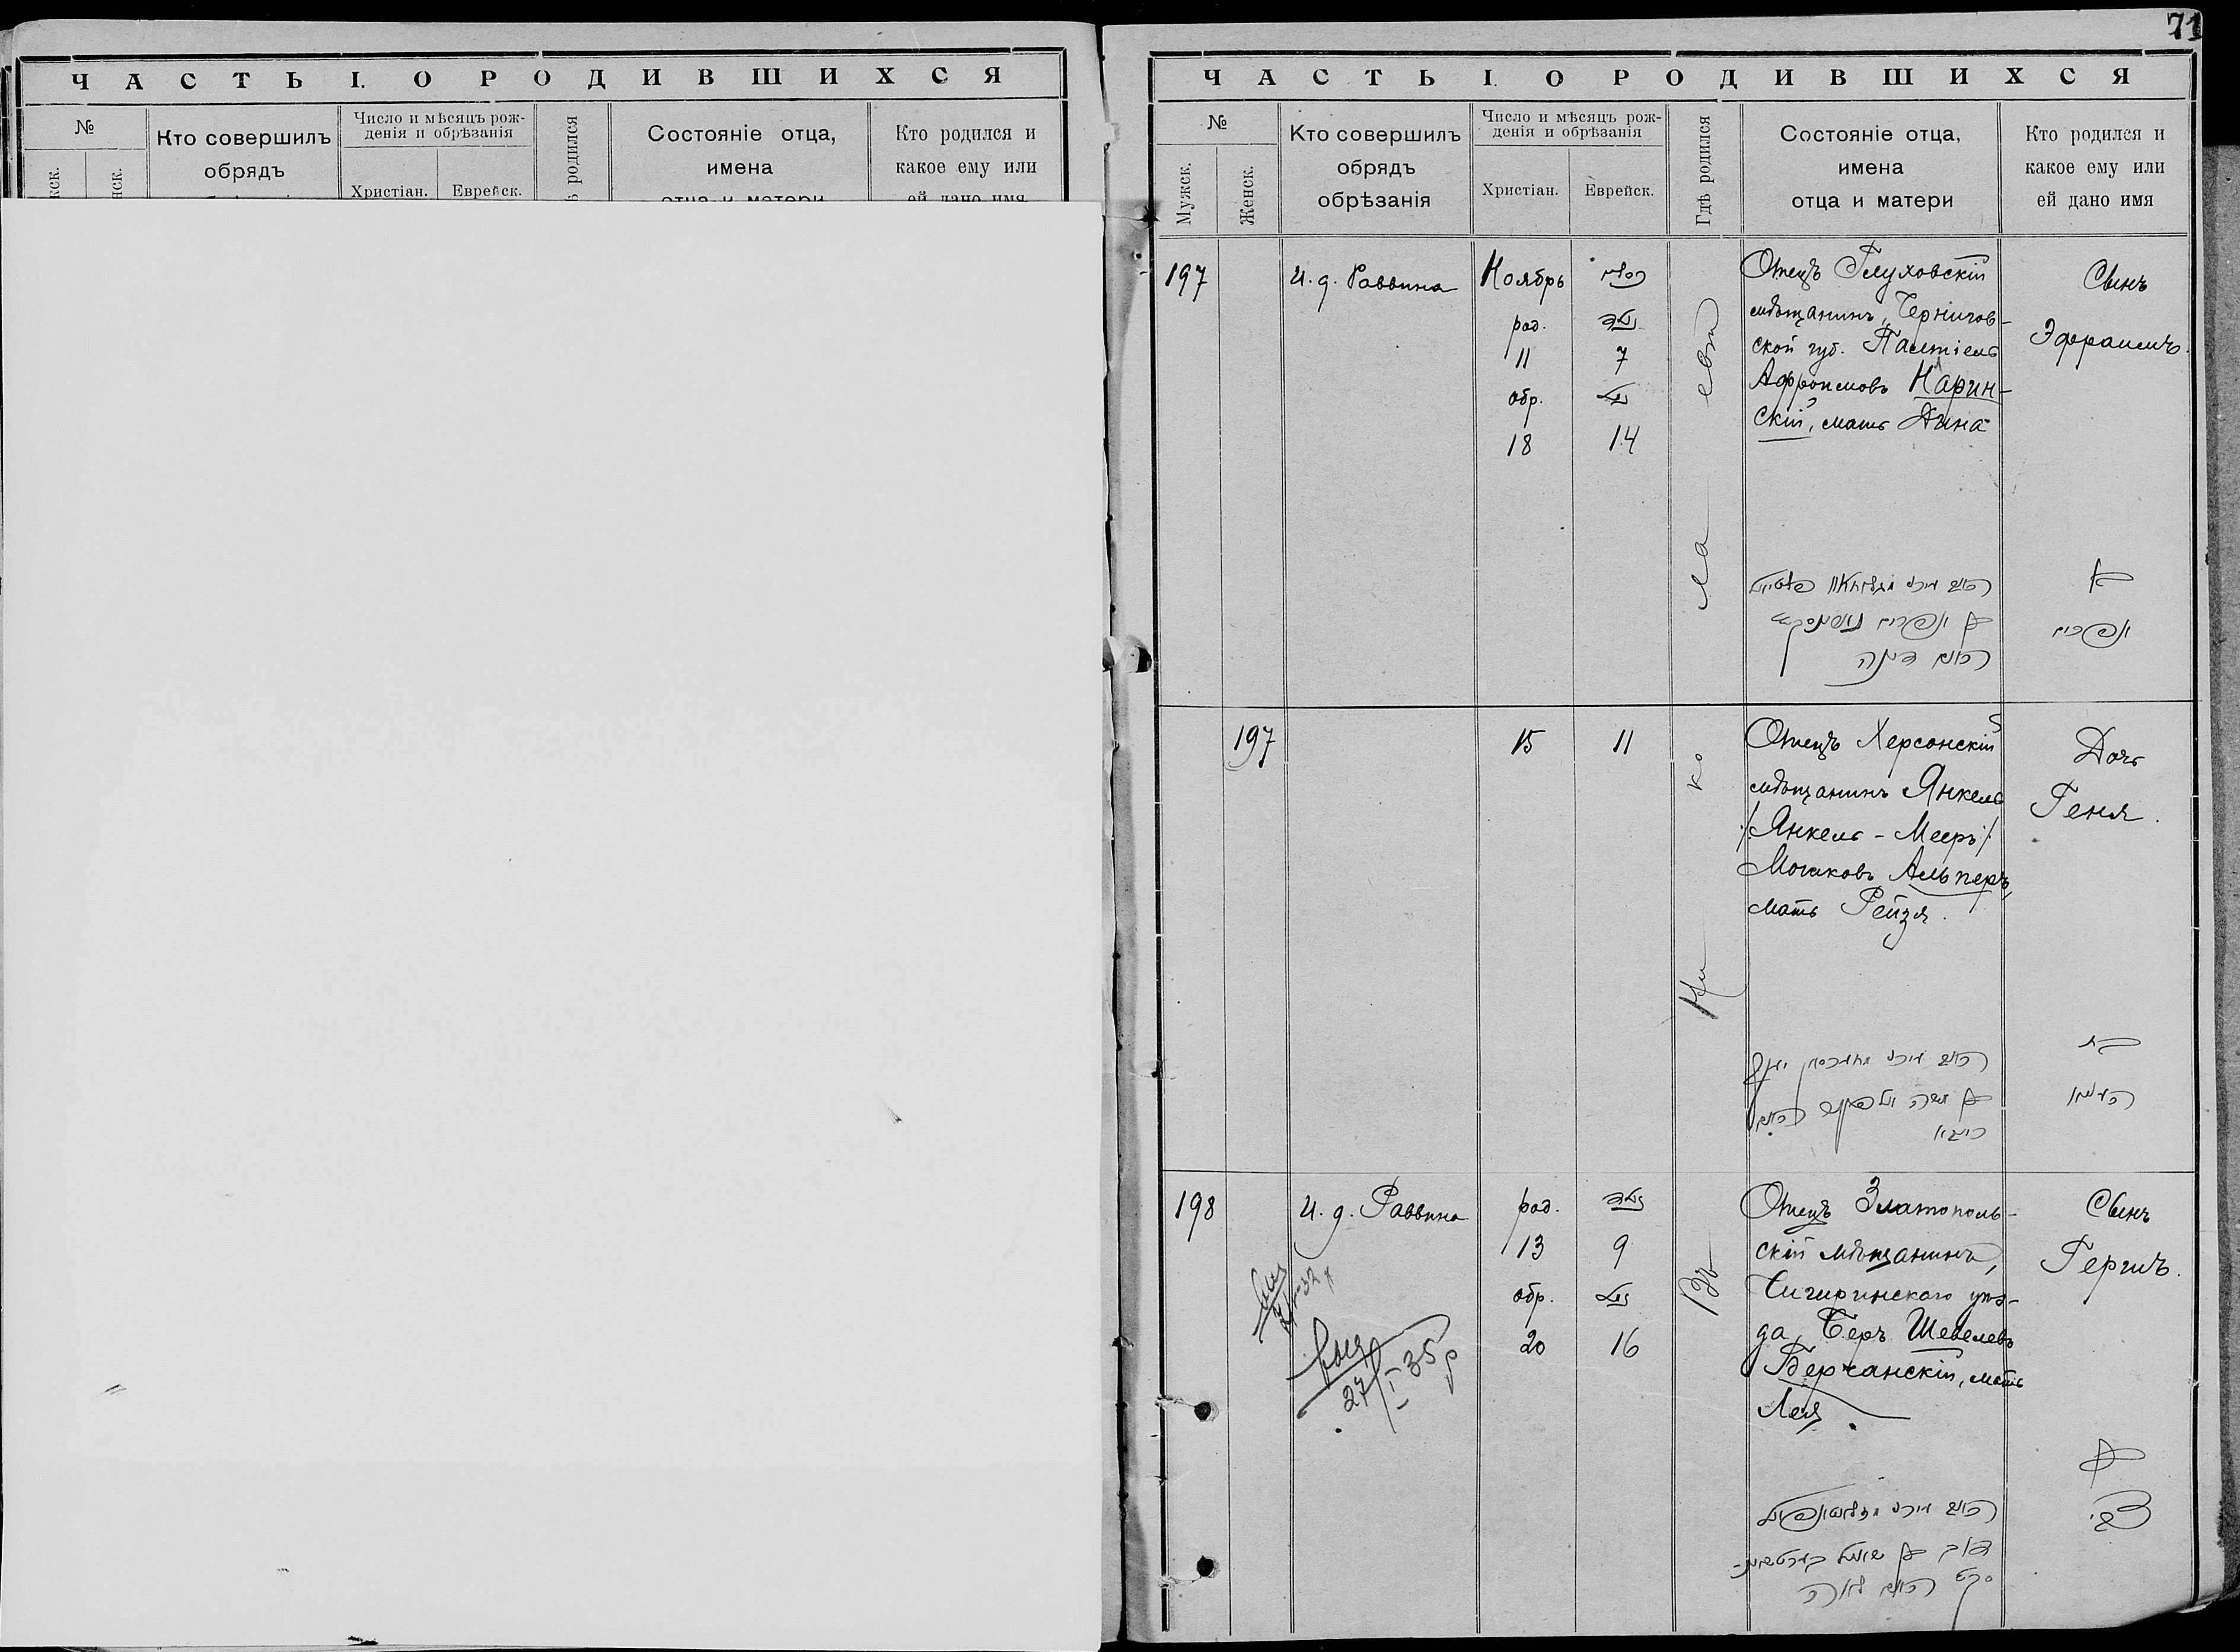 71
ЧАСТЬ I. О РОДИВШИХСЯ
№
Кто совершилъ
обрядъ
Число и мѣсяцъ рож-
денія и обрѣзанія
Христіан.
Еврейск.
родился
Состояніе отца,
имена
отца и матери
Кто родился и
какое ему или
ей дано имя
ЧАСТЬ I. О РОДИВШИХСЯ
№
Мужск.
Женск.
Кто совершилъ
обрядъ
обрѣзанія
Число и мѣсяцъ рож-
денія и обрѣзанія
Христіан.
Еврейск.
Гдѣ родился
Состояніе отца,
имена
отца и матери
Кто родился и
какое ему или
ей дано имя
197
И. д. Раввина
Ноябрь
род.
11
обр.
18
כסלו
נולד
7
נימול
14
Отецъ Глуховскій
мѣщанинъ, Чернигов-
ской губ. Палтіель
Афроимовъ Нарин-
скій, мать Дина
Сынъ
Эфраимъ.
האם דינה
בן
אפרים
197
15
11
Отецъ Херсонскій
мѣщанинъ Янкель
/Янкель-Мееръ/
Мошковъ Альперъ,
мать Рейзя.
Дочь
Геня.
בת
רייזא
198
И. д. Раввина
род.
13
обр.
20
נולד
9
נימול
16
Отецъ Златополь-
скій мѣщанинъ,
Чигиринскаго уѣз-
да, Беръ Шевелевъ
Берчанскій, мать
Лея.
Сынъ
Гершъ.
27/I 35 г
בן
צבי
האם לאה
Въ Николаевѣ